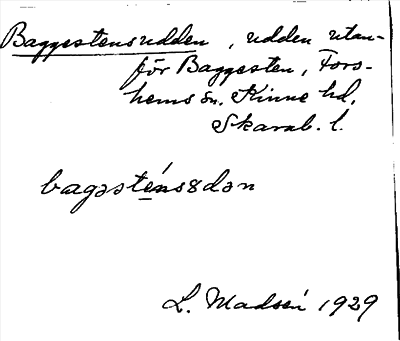 Baggestensudden, udden utan-
för Baggesten, Fors-
hems sn. Kinne hd,
Skarab. l.
bagəsténsȣdən
L. Madsén 1929